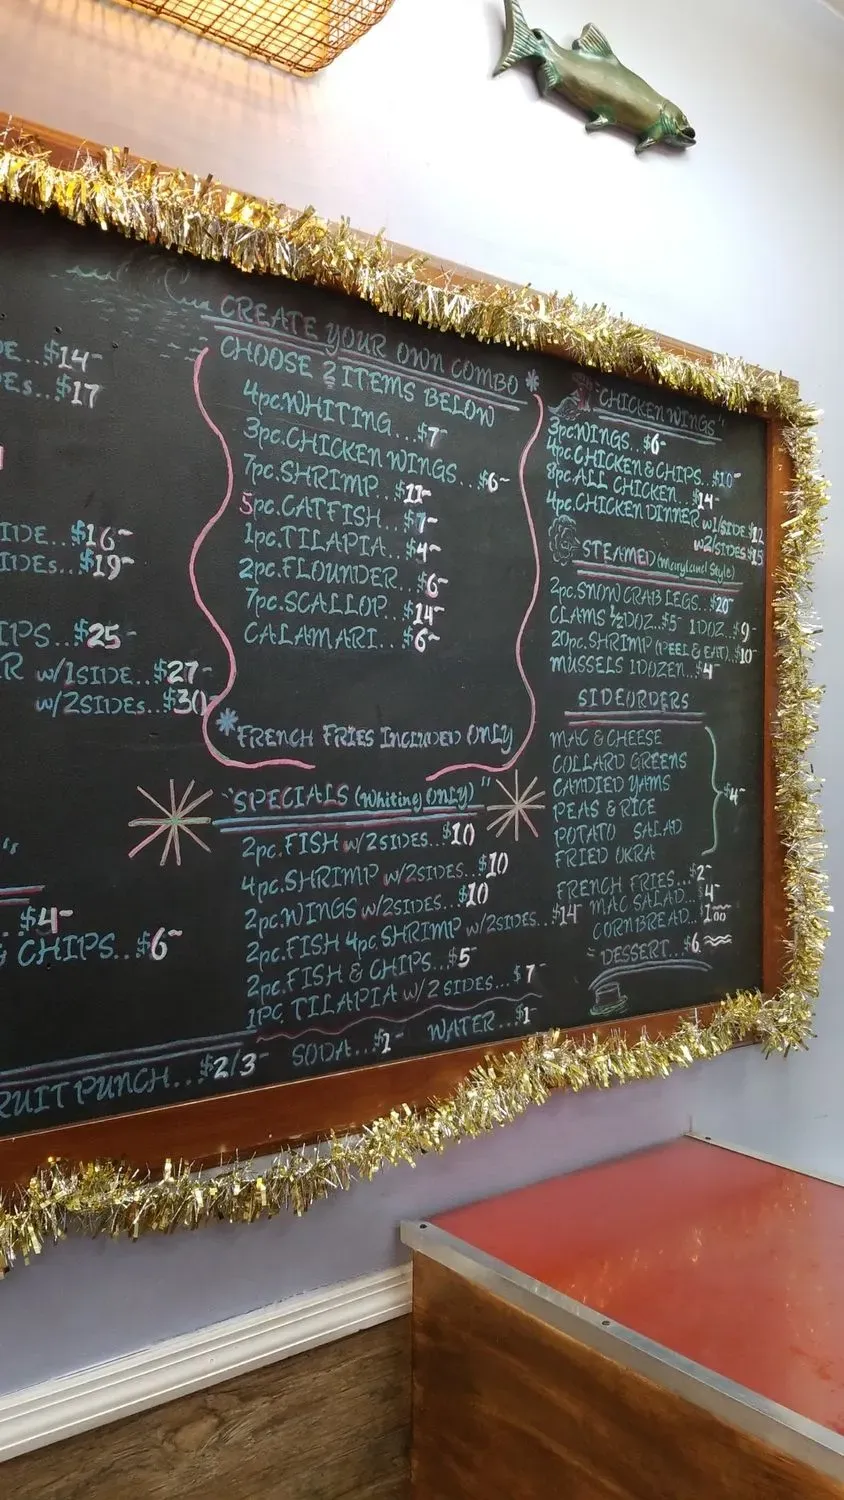 DE...$14
DEs...$17
IDE...$16
IDEs...$19
IPS...$25
R w/1SIDE...$27
w/2SIDEs...$30
...$4
& CHIPS...$6
RUIT PUNCH...$2/3
SODA...$1
WATER...$1
CREATE YOUR OWN COMBO *
CHOOSE 2 ITEMS BELOW
4pc.WHITING...$7
3pc.CHICKEN WINGS...$6
7pc.SHRIMP...$11
5pc.CATFISH...$7
1pc.TILAPIA...$4
2pc.FLOUNDER...$6
7pc.SCALLOP...$14
CALAMARI...$6
*FRENCH FRIES INCLUDED ONLY
"SPECIALS (Whiting ONLY)"
2pc.FISH w/2SIDES...$10
4pc.SHRIMP w/2SIDES...$10
2pc.WINGS w/2SIDES...$10
2pc.FISH 4pc.SHRIMP w/2SIDES...$14
2pc.FISH & CHIPS...$5
1PC TILAPIA w/2 SIDES...$7
"CHICKEN WINGS"
3pc.WINGS...$6
4pc CHICKEN & CHIPS...$10
8pc.ALL CHICKEN...$14
4pc.CHICKEN DINNER w1/SIDE.$12
w2/SIDES $15
STEAMED (Maryland Style)
2pc.SNOW CRAB LEGS...$20
CLAMS ½DOZ..$5 1DOZ..$9
20pc.SHRIMP (PEEL & EAT)..$10
MUSSELS 1DOZEN...$4
SIDEORDERS
MAC & CHEESE
COLLARD GREENS
CANDIED YAMS
PEAS & RICE
POTATO SALAD
FRIED OKRA
$4
FRENCH FRIES...$2
MAC SALAD...$4
CORNBREAD...1.00
"DESSERT...$6